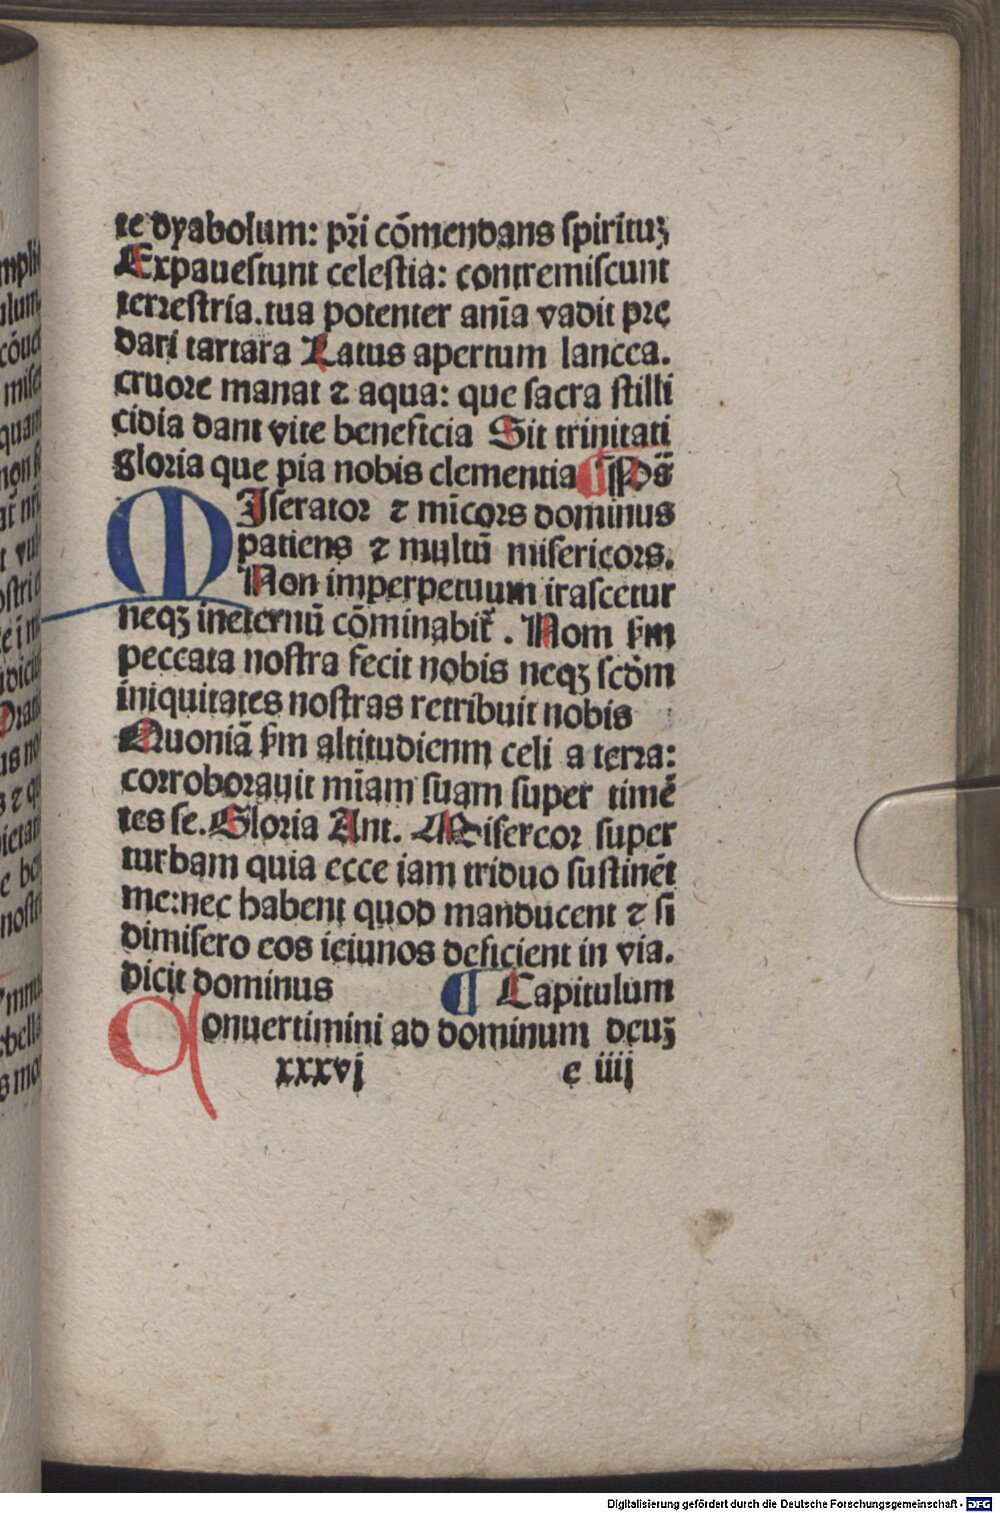 te dyabolum: pr̄i cōmendans spirituꝫ
Expauescunt celestia: contremiscunt
terrestria. tua potenter anīa vadit pre
dari tartara Latus apertum lancea.
cruore manat ⁊ aqua: que sacra stilli
cidia dant vite beneficia Sit trinitati
gloria que pia nobis clementia ¶ Ps̄
MIserator ⁊ mīcors dominus
patiens ⁊ multū misericors.
Non imperpetuum irascetur
neqꝫ ineternū cōminabit᷑. Nom ẜm
peccata nostra fecit nobis neqꝫ scd̄m
iniquitates nostras retribuit nobis
Quoniā ẜm altitudienm celi a terra:
corroborauit mīam suam super timē
tes se. Gloria Ant. Misereor super
turbam quia ecce iam triduo sustinēt
me: nec habent quod manducent ⁊ si
dimisero eos ieiunos deficient in via.
dicit dominus ¶ Capitulum
Conuertimini ad dominum deuꝫ
xxxvj e iiij
Digitalisierung gefördert durch die Deutsche Forschungsgemeinschaft - DFG